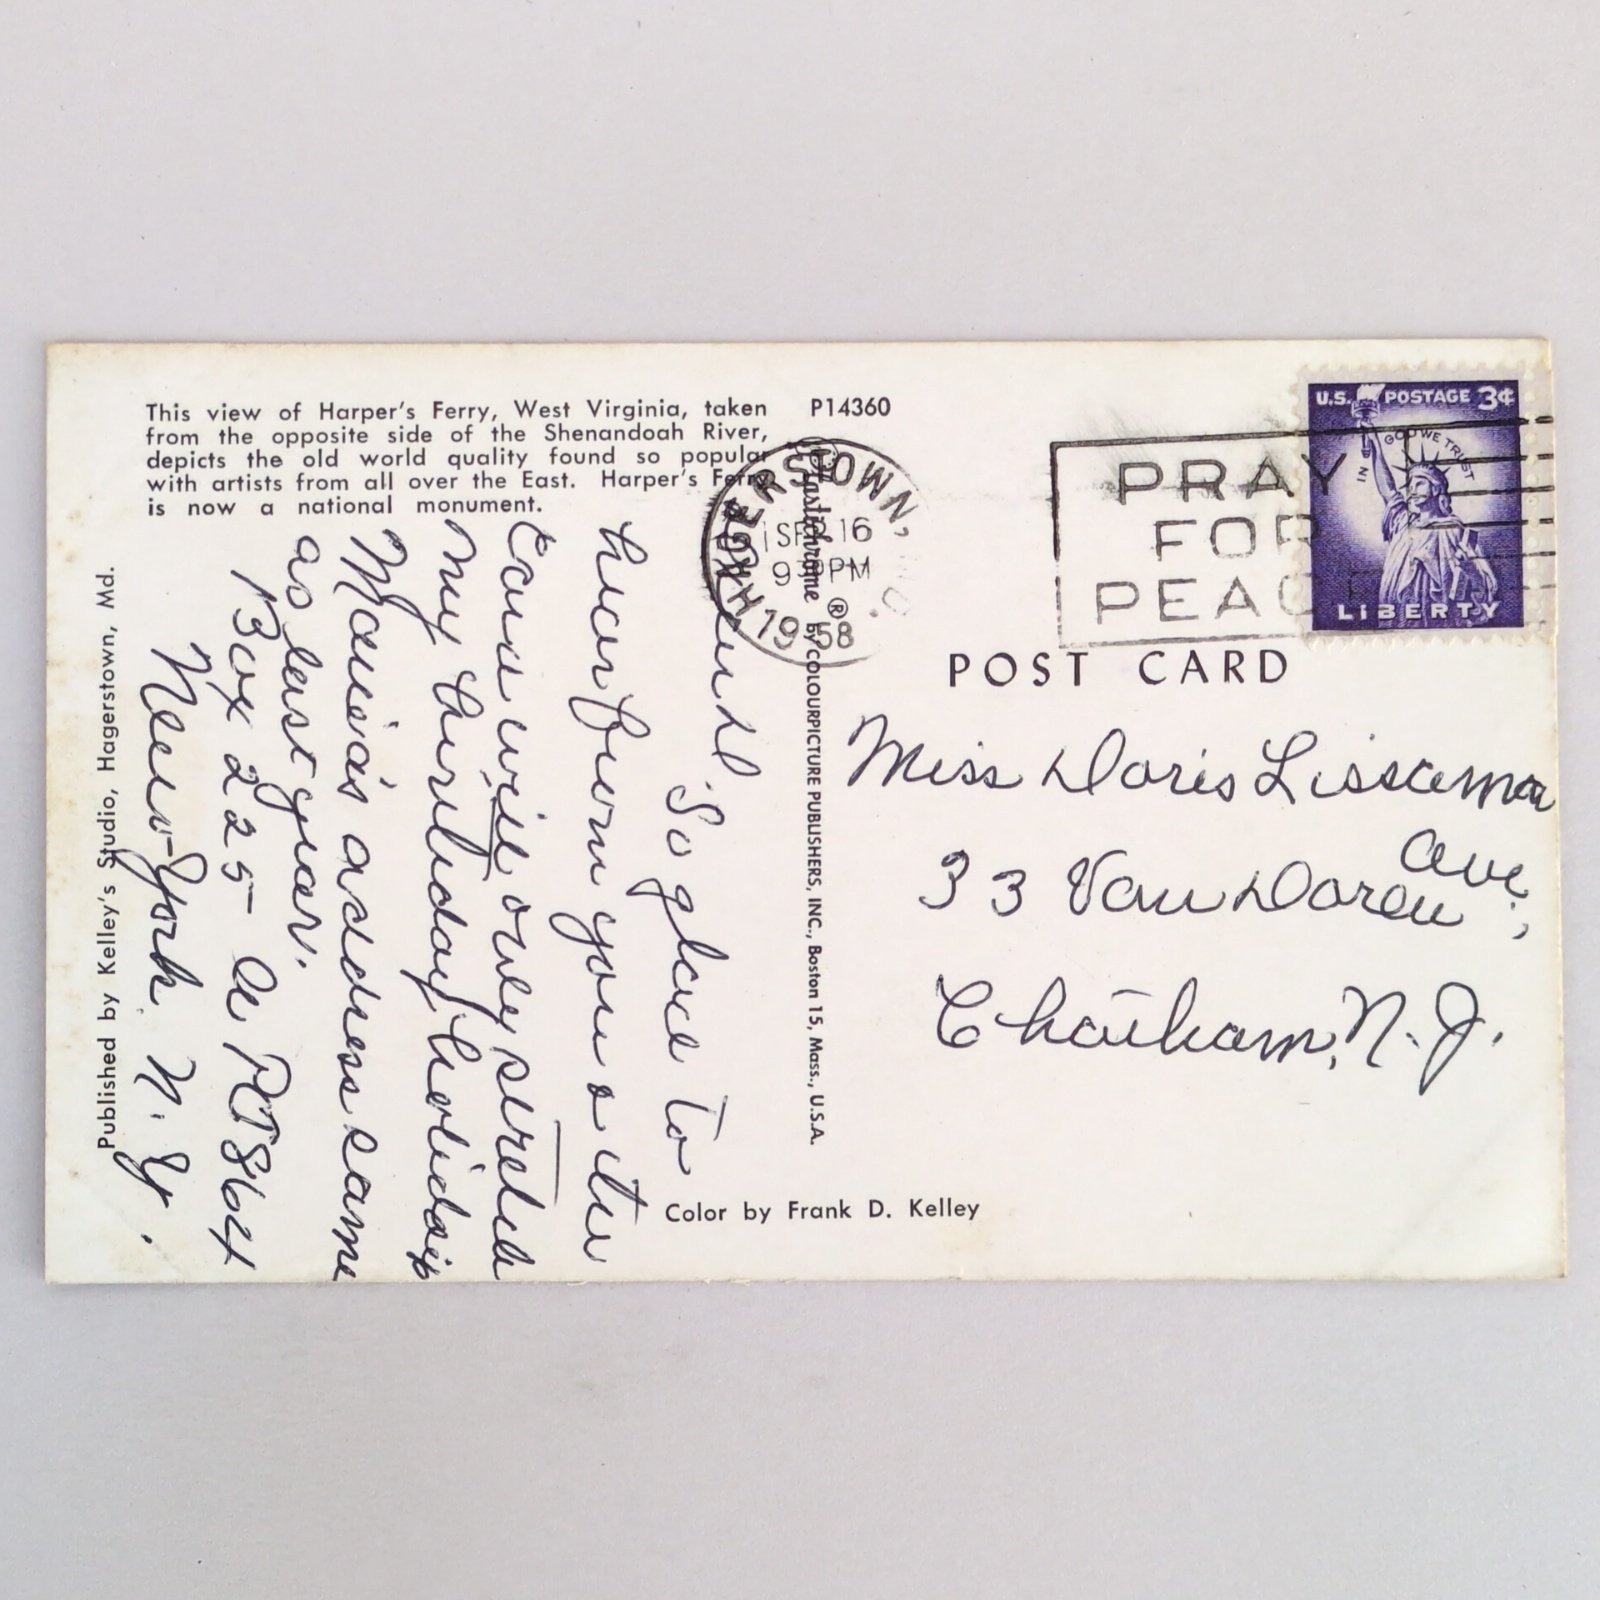 This view of Harper's Ferry, West Virginia, taken
from the opposite side of the Shenandoah River,
depicts the old world quality found so popular
with artists from all over the East. Harper's Ferry
is now a national monument.
P14360
HAGERSTOWN,
SEP 16
9 PM
1958
PRAY
FOR
PEACE
U.S. POSTAGE 3¢
IN GOD WE TRUST
LIBERTY
POST CARD
Miss Doris Lissaman
33 Van Doren Ave.,
Chatham, N. J.
So glad to
hear from you & the
card will only stretch
my birthday holiday
Maria's address same
as last year.
Box 225 A RT 864
New York N. Y.
Plastichrome ® by COLOURPICTURE PUBLISHERS, INC., Boston 15, Mass., U.S.A.
Color by Frank D. Kelley
Published by Kelley's Studio, Hagerstown, Md.